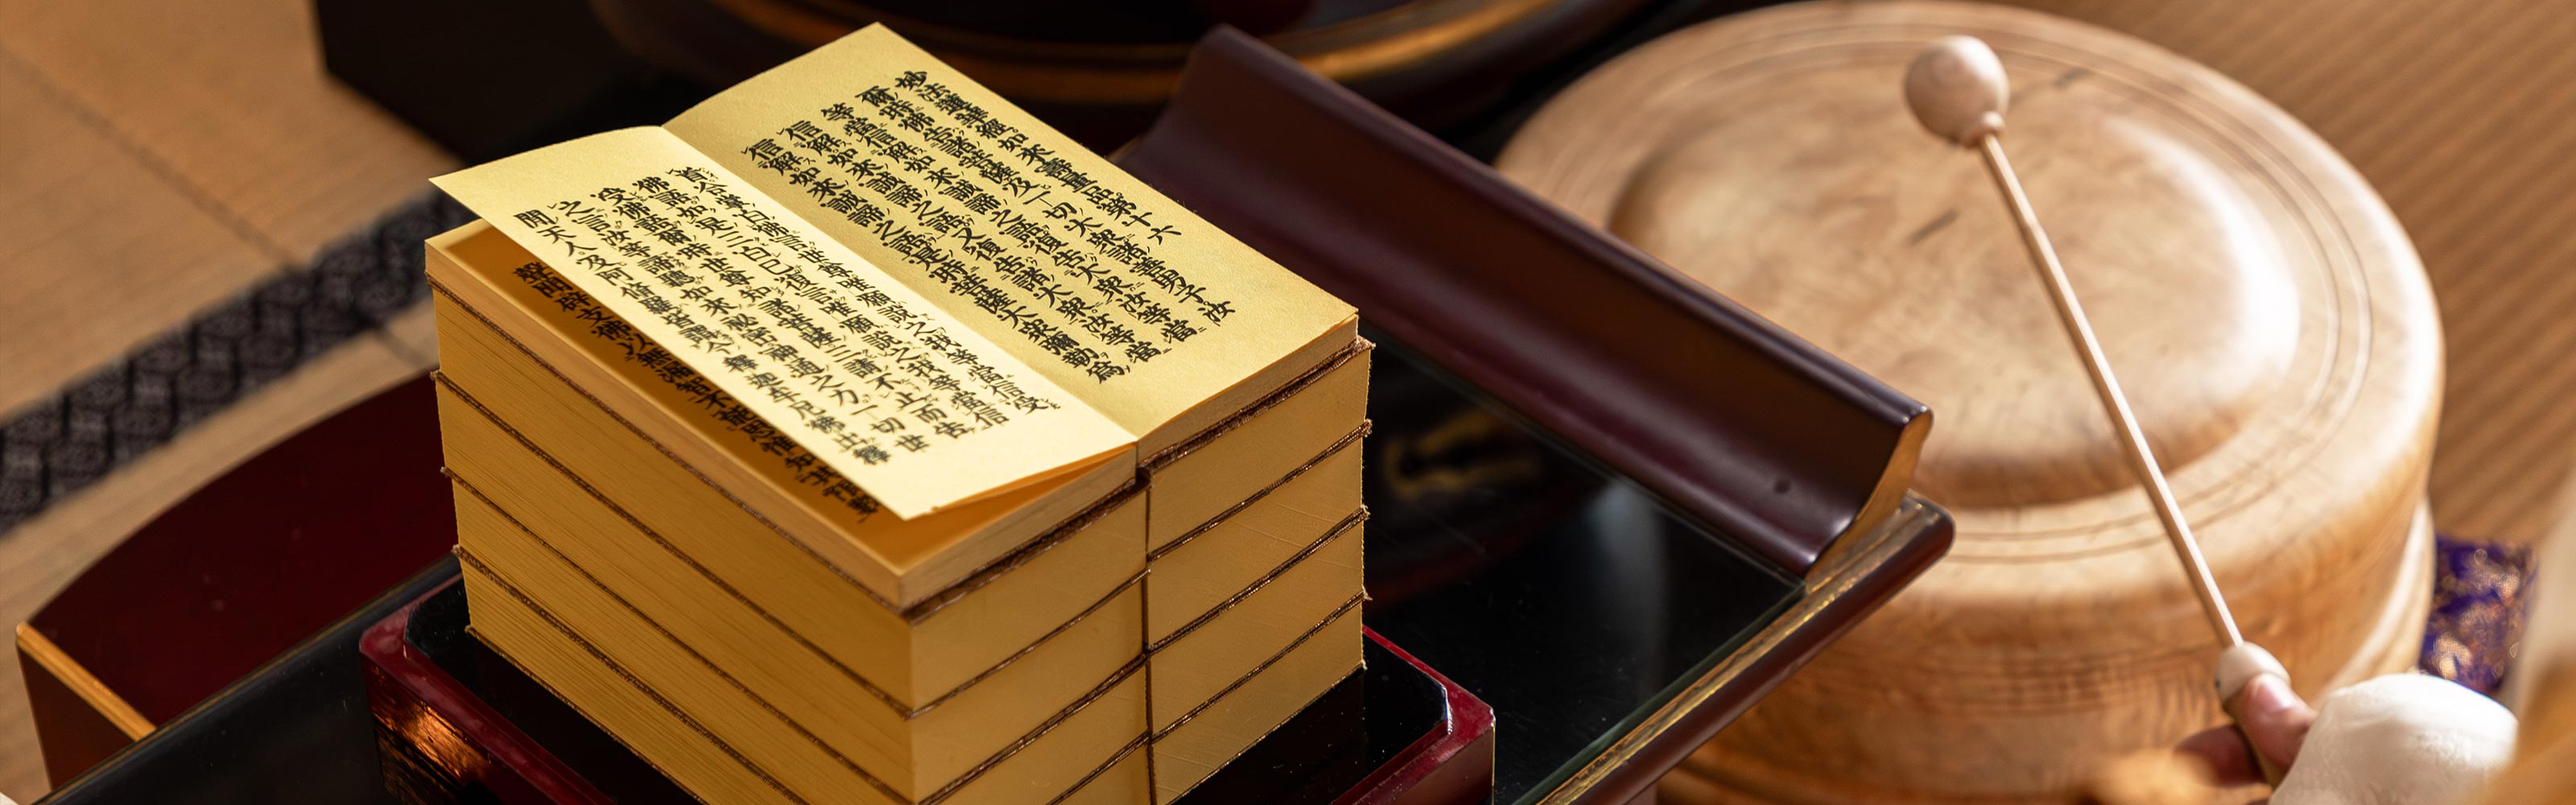 妙法蓮華經如來壽量品第十六
爾時佛告諸菩薩及一切大衆諸善男子汝
等當信解如來誠諦之語復告大衆汝等當
信解如來誠諦之語又復告諸大衆汝等當
信解如來誠諦之語是時菩薩大衆彌勒為
首合掌白佛言世尊唯願說之我等當信受
佛語如是三白已復言唯願說之我等當信
受佛語爾時世尊知諸菩薩三請不止而告
之言汝等諦聽如來秘密神通之力一切世
間天人及阿修羅皆謂今釋迦牟尼佛出釋
聲聞辟支佛以無漏智不能思惟知其限數